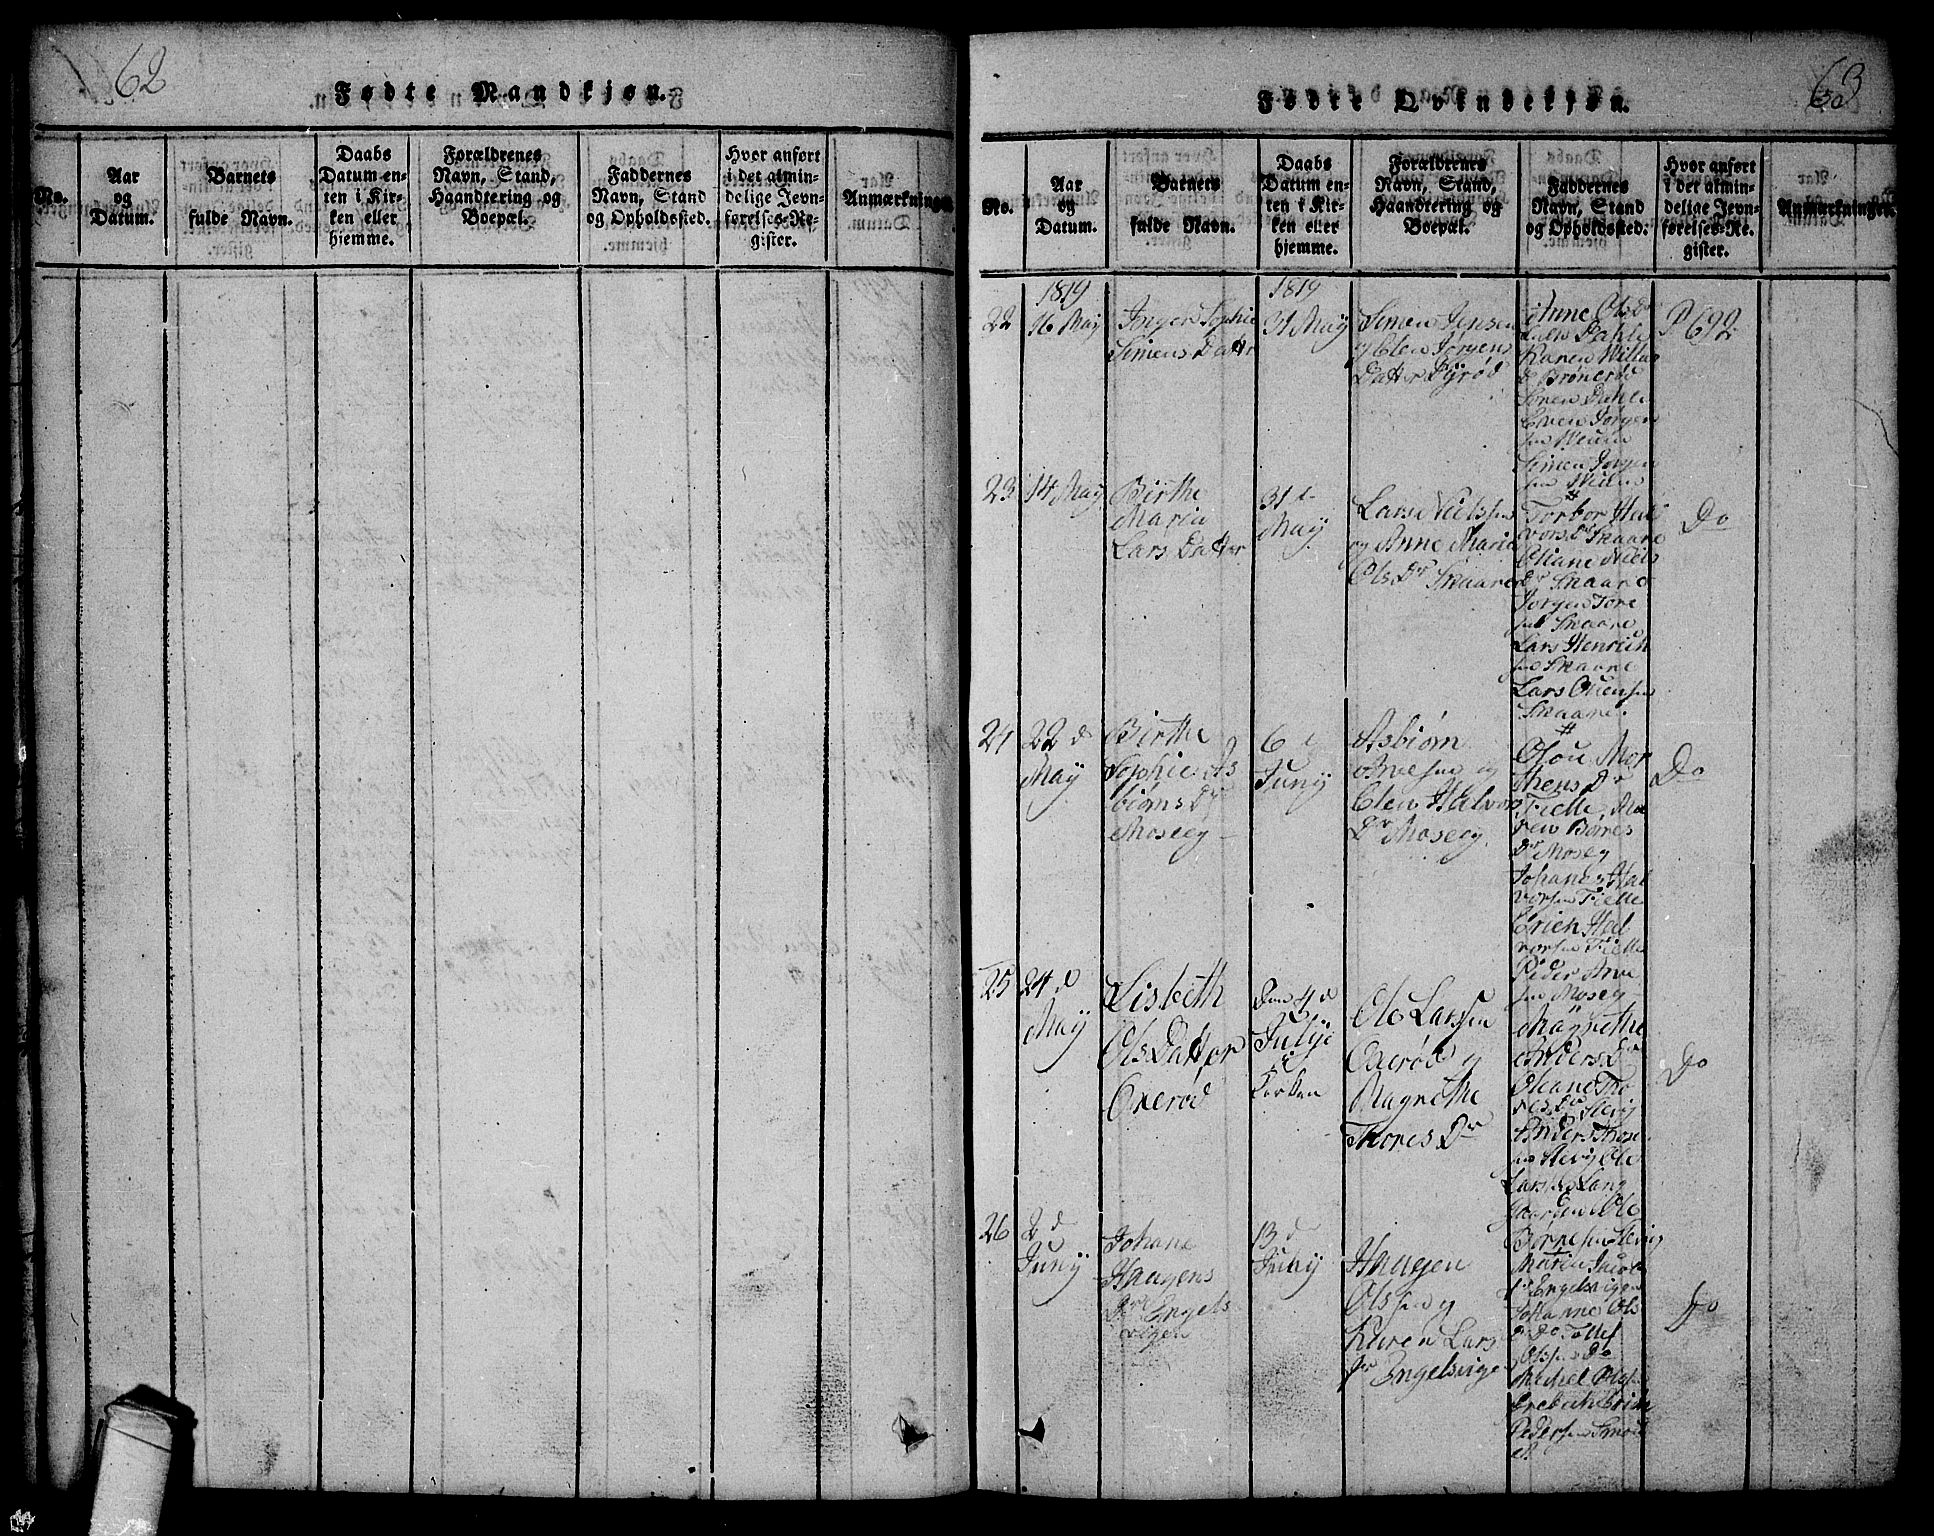 62
Fødte Mandkjøn.
No.
Aar
og
Datum.
Barnets
fulde Navn.
Daabs
Datum en-
ten i Kir-
ken eller
hjemme.
Forældrenes
Navn, Stand,
Haandtering og
Boepæl.
Faddernes
Navn, Stand
og Opholdssted.
Hvor anført
i det almin-
delige Jevn-
førelses-Re-
gister.
Anmærkninger.
63
Fødte Qvindekjøn.
No.
Aar
og
Datum.
Barnets
fulde Navn.
Daabs
Datum en-
ten i Kir-
ken eller
hjemme.
Forældrenes
Navn, Stand,
Haandtering og
Boepæl.
Faddernes
Navn, Stand
og Opholdssted.
Hvor anført
i det almin-
delige Jevn-
førelses-Re-
gister.
Anmærkninger.
22
1819
16 May
Inger Sophie
Simens Datter
1819
31 May
Simen Jensen
og Elen Jørgens
Datter Dyrød
Anne Ols Dr
Dahle
Karen Willum
Dr Brønerød
Søren Dahle
Even Jørgen
sen
Simen Jørgen
sen
P 692
23
14 May
Birthe
Maria
Lars Datter
31 d
May
Lars Nielssen
og Anne Maria
Ols Dr Snaare
Torbor Hal
vors Dr Snaare
Oliane Niels
Dr Snaare
Jørgen Tore
sen Snaare
Lars Henrich
sen Snaare
Lars Ellensen
Snaare.
Do
24
22 d
May
Birthe
Sophie As
biørns Dr
Moseeg
6 d
Juny
Asbiørn
Arvesen og
Elen Halvors
Dr Moseeg
Olou Mor
thens Dr
Fielle, Ma
ren Børres
Dr Moseg
Johanes Hal
vorsen Fielle
Erich Hal
vorsen Fielle
Peder Arve
sen Moseg
Do
25
24 d
May
Lisbeth
Ols Datter
Oxerød
Den 4 d
Julije
i
Kirken
Ole Larssen
Oxerød og
Magrethe
Thores Dr
Magrethe
Anders Dr
Oleane Tho
res Dr Hevig
Anders Thore
sen Hevig Ole
Larssen Lang
gaarden Ole
Børresen Hevig
Do
26
2 d
Juny
Johane
Haagens
Dr Engels
vigen
13 d
Juny
Haagen
Olssen og
Karen Lars
Dr Engelsvigen
Maria Jacobs
Dr Engelsvigen
Johanne Ols
Dr Do Tollef
Olssen Do
Michel Ols
Pedersen
Do